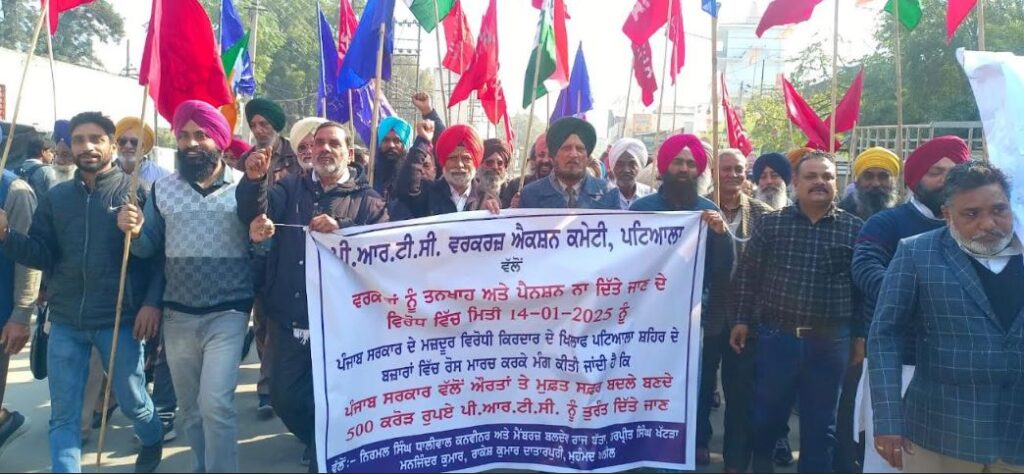 ਪੀ.ਆਰ.ਟੀ.ਸੀ. ਵਰਕਰਜ਼ ਐਕਸ਼ਨ ਕਮੇਟੀ, ਪਟਿਆਲਾ
ਵੱਲੋਂ
ਨੂੰ ਤਨਖਾਹ ਅਤੇ ਪੈਨਸ਼ਨ ਨਾ ਦਿੱਤੇ ਜਾਣ ਦੇ
ਵਿਰੋਧ ਵਿੱਚ ਮਿਤੀ 14-01-2025 ਨੂੰ
ਪੰਜਾਬ ਸਰਕਾਰ ਦੇ ਮਜ਼ਦੂਰ ਵਿਰੋਧੀ ਕਿਰਦਾਰ ਦੇ ਖਿਲਾਫ ਪਟਿਆਲਾ ਸ਼ਹਿਰ ਦੇ
ਬਜ਼ਾਰਾਂ ਵਿੱਚ ਰੋਸ ਮਾਰਚ ਕਰਕੇ ਮੰਗ ਕੀਤੀ ਜਾਂਦੀ ਹੈ ਕਿ
ਪੰਜਾਬ ਸਰਕਾਰ ਵੱਲੋਂ ਔਰਤਾਂ ਤੇ ਮੁਫ਼ਤ ਸਫ਼ਰ ਬਦਲੇ ਬਣਦੇ
500 ਕਰੋੜ ਰੁਪਏ ਪੀ.ਆਰ.ਟੀ.ਸੀ. ਨੂੰ ਤੁਰੰਤ ਦਿੱਤੇ ਜਾਣ
ਵੱਲੋਂ:- ਨਿਰਮਲ ਸਿੰਘ ਧਾਲੀਵਾਲ ਕਨਵੀਨਰ ਅਤੇ ਮੈਂਬਰਜ਼ ਬਲਦੇਵ ਰਾਜ ਬੱਤਾ, ਹਰਪ੍ਰੀਤ ਸਿੰਘ ਖੱਟੜਾ
ਮਨਜਿੰਦਰ ਕੁਮਾਰ, ਰਾਕੇਸ਼ ਕੁਮਾਰ ਦਾਤਾਰਪੁਰੀ, ਮੁਹੰਮਦ